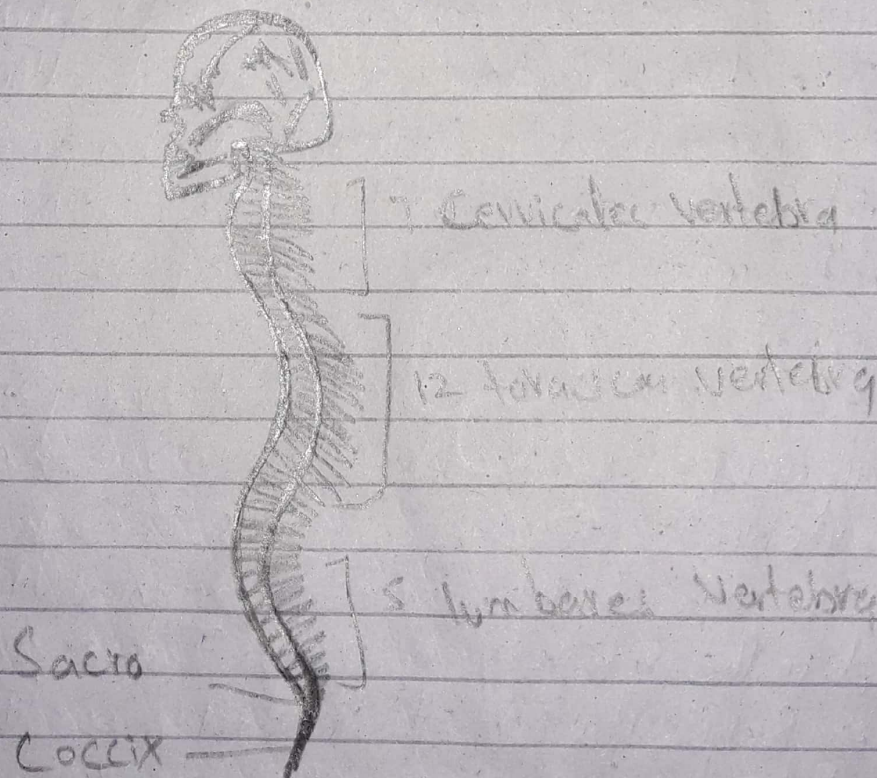 7 Cervicales Vertebra
12 toraxicas vertebra
5 lumbares Vertebra
Sacro
Coccix